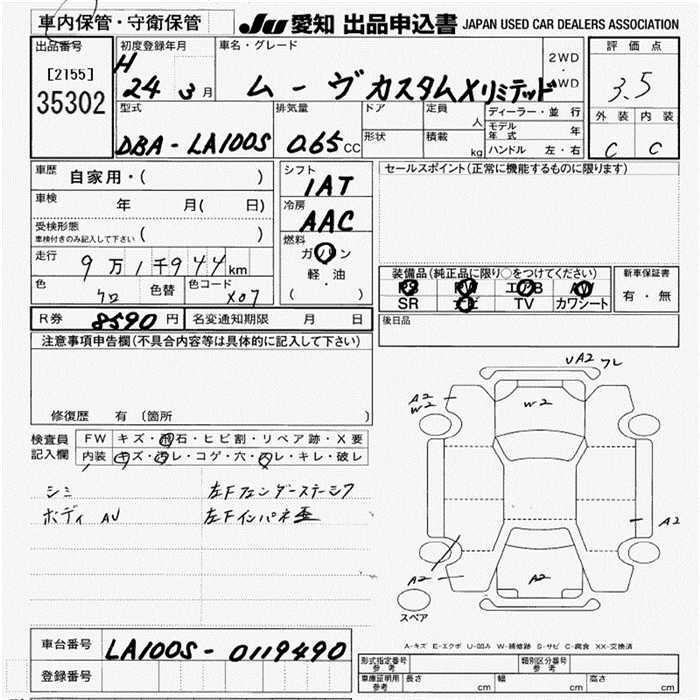 車内保管・守衛保管 JU 愛知 出品申込書 JAPAN USED CAR DEALERS ASSOCIATION
出品番号 初度登録年月 車名・グレード 評価点
[2155] H 24 3月 ムーヴ カスタムXリミテッド 2WD・4WD 3.5
35302
型式 排気量 ドア 定員 人 ディーラー・並行 外装 内装
形状 積載 kg モデル年式 年
DBA-LA100S 0.65CC ハンドル 左・右 C C
車歴 自家用・( ) シフト 1AT セールスポイント(正常に機能するものに限ります)
車検 年 月( 日) 冷房 AAC
受検形態 ( )
車検付きのみ記入して下さい
燃料 ガソリン
走行 9万1千944km 軽・油
( )
装備品(純正品に限り○をつけてください) 新車保証書
PS PW エアB AW 有・無
SR ナビ TV カワシート
色 クロ 色替 色コード X07
R券 8590円 名変通知期限 月 日 後日品
注意事項申告欄(不具合内容等は具体的に記入して下さい)
UA2 フレ
A2
W2
W2
修復歴 有 〔箇所 〕
検査員 FW キズ・飛石・ヒビ割・リペア跡・X要
記入欄 内装 キズ・汚レ・コゲ・穴・スレ・キレ・破レ
シミ 左Fフェンダーステーシフ
ボディ AU 左Fインパネ歪
A2
A2
A2
スペア
A-キズ E-エクボ U-凹み W-補修跡 S-サビ C-腐食 XX-交換済
車台番号 LA100S-0119490
登録番号
形式指定番号 参考 類別区分番号 参考
車庫証明用 参考 長さ cm 幅 cm 高さ cm